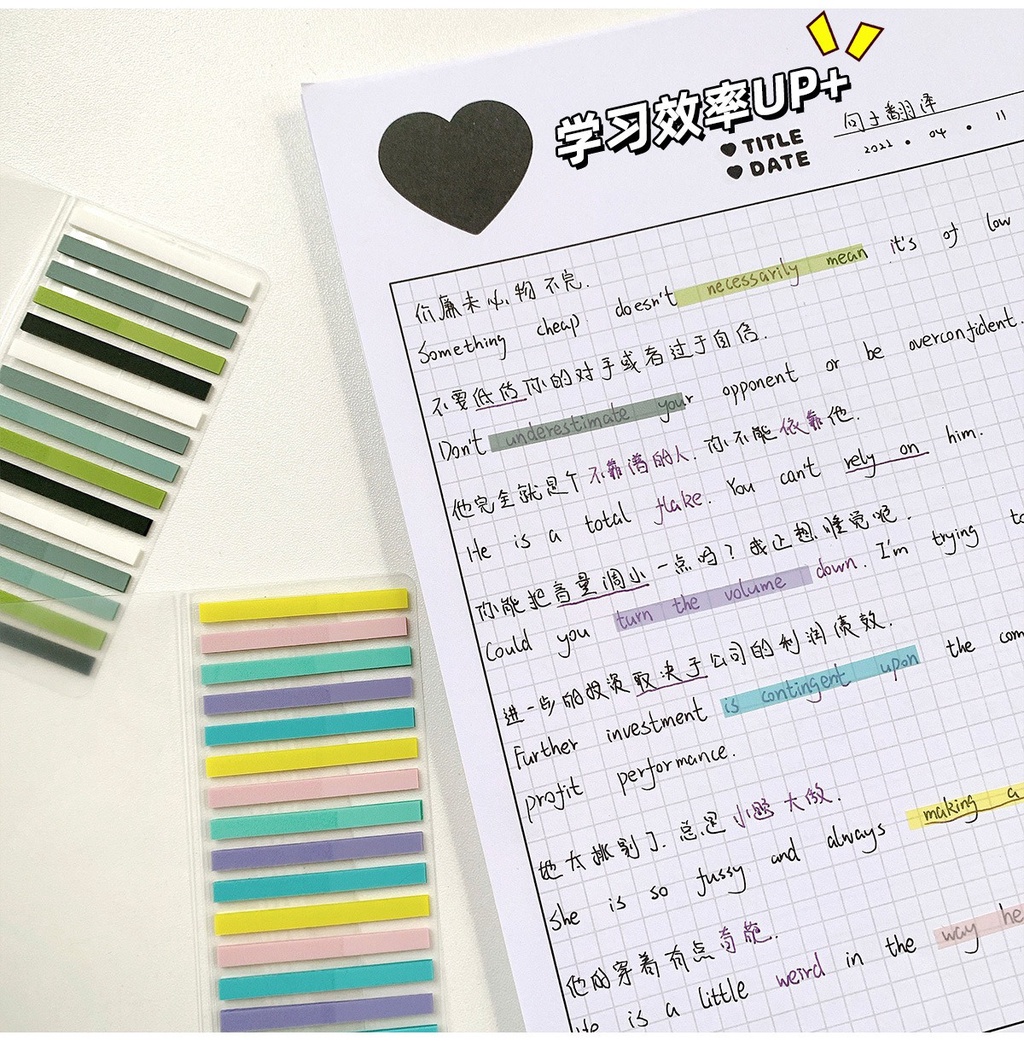 学习效率UP+
TITLE 句子翻译
DATE 2022 . 04 . 11
价廉未必物不完.
Something cheap doesn't necessarily mean it's of low
不要低估你的对手或者过于自信.
Don't underestimate your opponent or be overconfident.
他完全就是个不靠谱的人.你不能依靠他.
He is a total flake. You can't rely on him.
你能把音量调小一点吗?我正想睡觉呢.
Could you turn the volume down. I'm trying to
进一步的投资取决于公司的利润绩效.
Further investment is contingent upon the com
profit performance.
她太挑剔了.总是小题大做.
She is so fussy and always making a
他的穿着有点奇葩.
He is a little weird in the way he